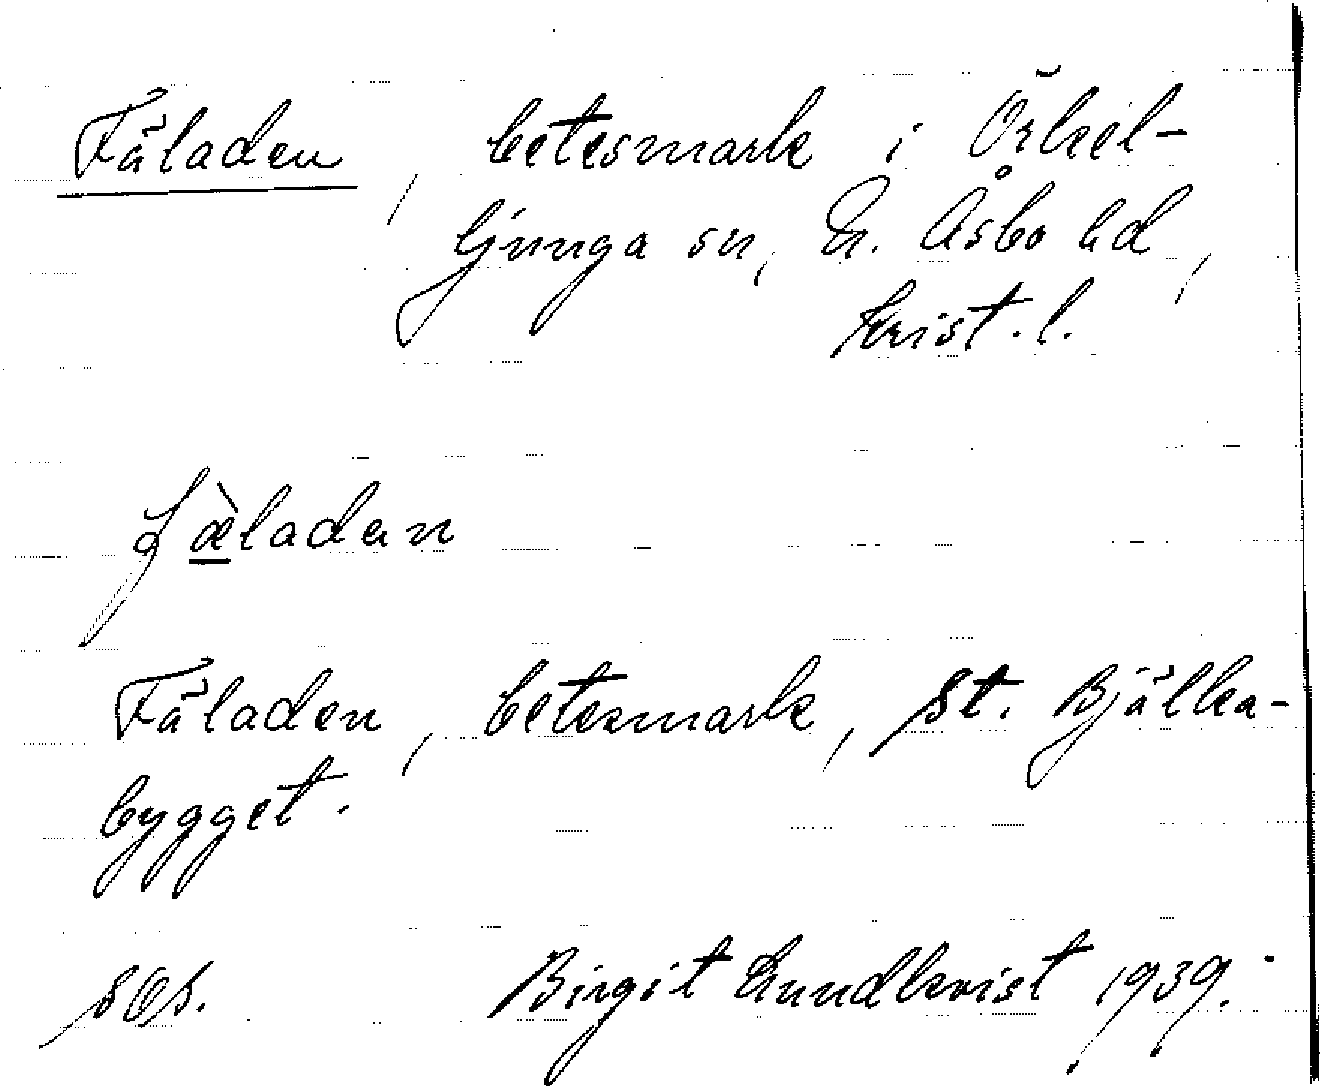 Fäladen, betesmark i Örkel-
ljunga sn, N. Åsbo hd,
Krist. l.
fæ̀ladan
Fäladen, betesmark, St. Bjälka-
bygget.
Birgit Lundkvist 1939.